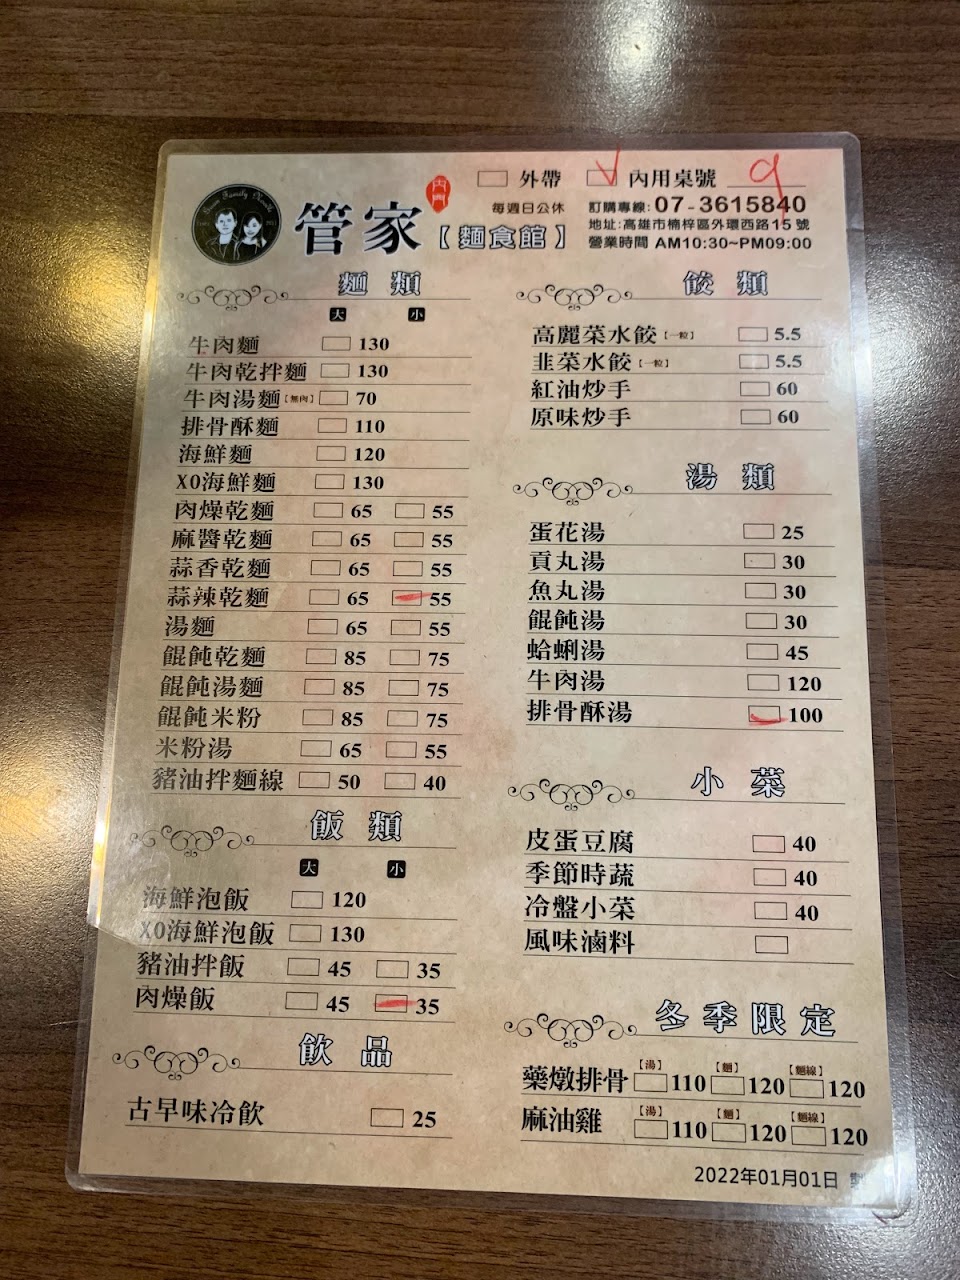 外帶 內用桌號 9
管家 內門 【麵食館】
每週日公休
訂購專線:07-3615840
地址:高雄市楠梓區外環西路15號
營業時間 AM10:30~PM09:00
麵類
大 小
牛肉麵 130
牛肉乾拌麵 130
牛肉湯麵【無肉】 70
排骨酥麵 110
海鮮麵 120
XO海鮮麵 130
肉燥乾麵 65 55
麻醬乾麵 65 55
蒜香乾麵 65 55
蒜辣乾麵 65 55
湯麵 65 55
餛飩乾麵 85 75
餛飩湯麵 85 75
餛飩米粉 85 75
米粉湯 65 55
豬油拌麵線 50 40
飯類
大 小
海鮮泡飯 120
XO海鮮泡飯 130
豬油拌飯 45 35
肉燥飯 45 35
飲品
古早味冷飲 25
餃類
高麗菜水餃【一粒】 5.5
韭菜水餃【一粒】 5.5
紅油炒手 60
原味炒手 60
湯類
蛋花湯 25
貢丸湯 30
魚丸湯 30
餛飩湯 30
蛤蜊湯 45
牛肉湯 120
排骨酥湯 100
小菜
皮蛋豆腐 40
季節時蔬 40
冷盤小菜 40
風味滷料
冬季限定
【湯】 【麵】 【麵線】
藥燉排骨 110 120 120
【湯】 【麵】 【麵線】
麻油雞 110 120 120
2022年01月01日